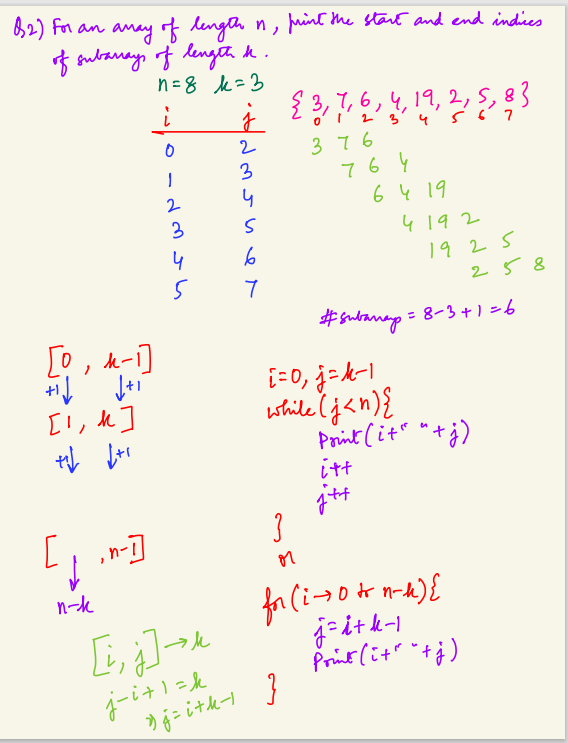 Q2) For an array of length n, print the start and end indices
of subarrays of length k.
n=8 k=3
{3, 7, 6, 4, 19, 2, 5, 8}
0 1 2 3 4 5 6 7
i j
0 2
1 3
2 4
3 5
4 6
5 7
3 7 6
7 6 4
6 4 19
4 19 2
19 2 5
2 5 8
#subarrays = 8-3+1=6
[0, k-1]
+1↓ ↓+1
[1, k]
+1↓ ↓+1
[ , n-1]
↓
n-k
[i, j]→k
j-i+1=k
⇒ j=i+k-1
i=0, j=k-1
while(j<n){
Print(i+" "+j)
i++
j++
}
or
for(i→0 to n-k){
j=i+k-1
Print(i+" "+j)
}